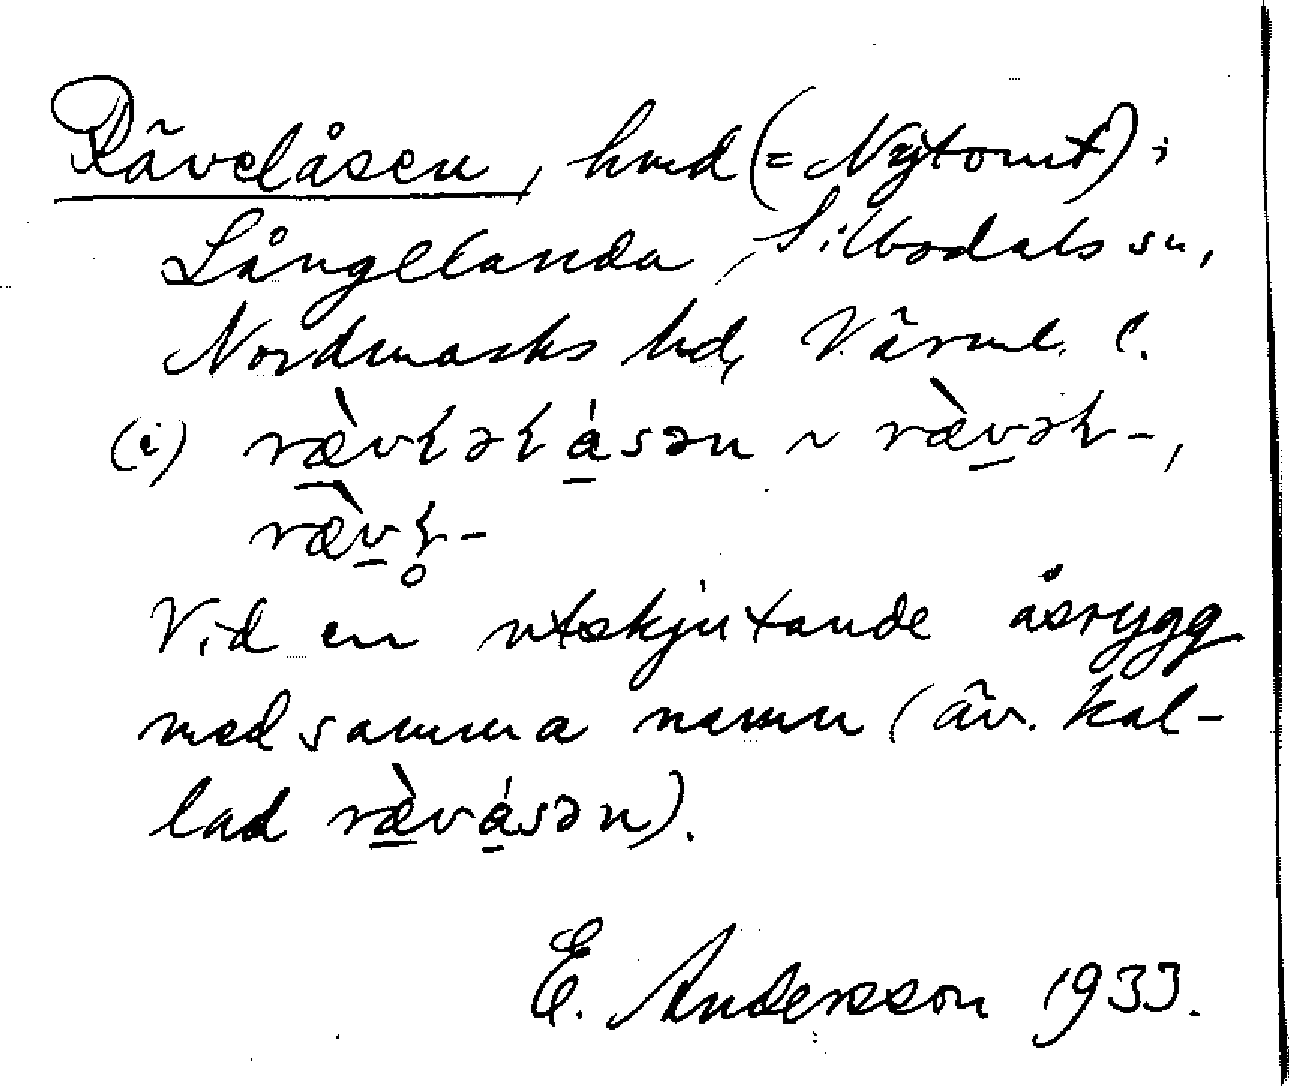 Rävelåsen, hmd (= Nytomt) i
Långelanda, Silbodals sn,
Nordmarks hd, Värml. l.
(i) ræ̀vɭəɭåsən ~ ræ̀vəɭ-,
ræ̀vɭ̥-
Vid en utskjutande åsrygg
med samma namn (äv. kal-
lad ræ̀våsən).
E. Andersson 1933.